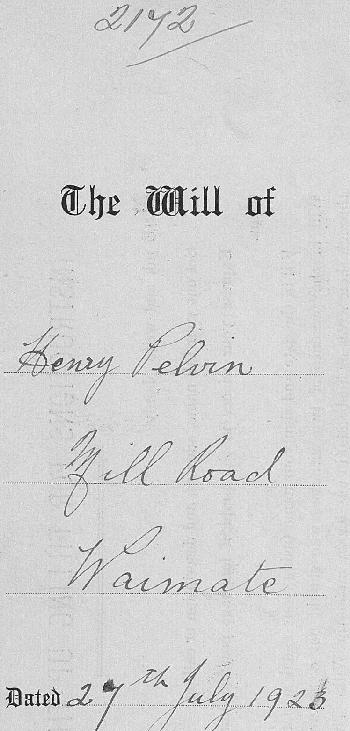 2172
The Will of
Henry Pelvin
Mill Road
Waimate
Dated 27th July 1923